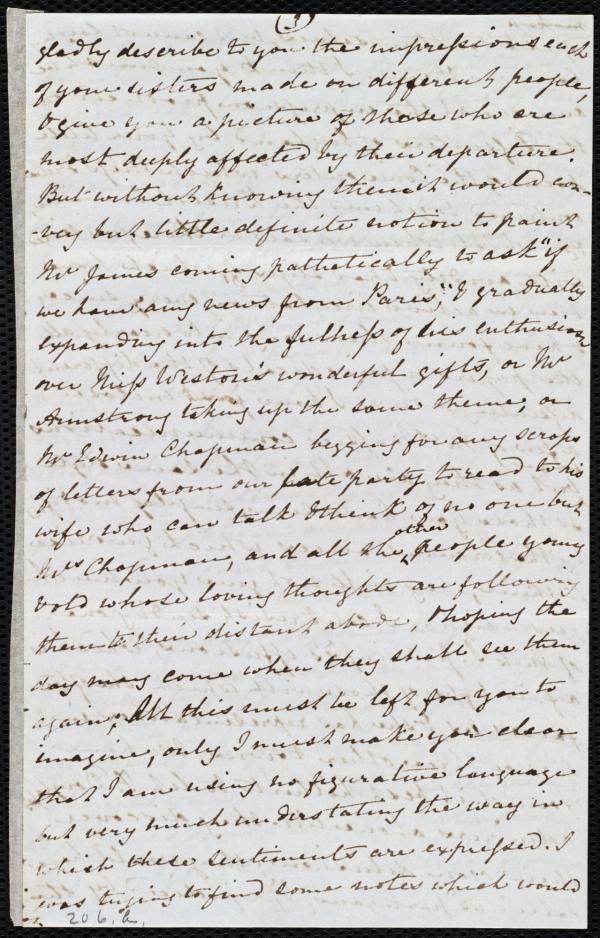 (3)
gladly describe to you the impressions each
of your sisters made on different people,
& give you a picture of those who are
most deeply affected by their departure.
But without knowing them it would con-
-vey but little definite notion to paint
Mr James coming pathetically to ask "if
we have any news from Paris", & gradually
expanding into the fulness of his enthusiasm
over Miss Weston's wonderful gifts, or Mr
Armstrong taking up the same theme, or
Mr Edwin Chapman begging for any scraps
of letters from our late party to read to his
wife who can talk & think of no one but
Mrs Chapman, and all the other people young
& old whose loving thoughts are following
them to their distant abode, & hoping the
day may come when they shall see them
again; All this must be left for you to
imagine, only I must make you clear
that I am using no figurative language
but very much understating the way in
which these sentiments are expressed. I
was trying to find some notes which would
206. A.